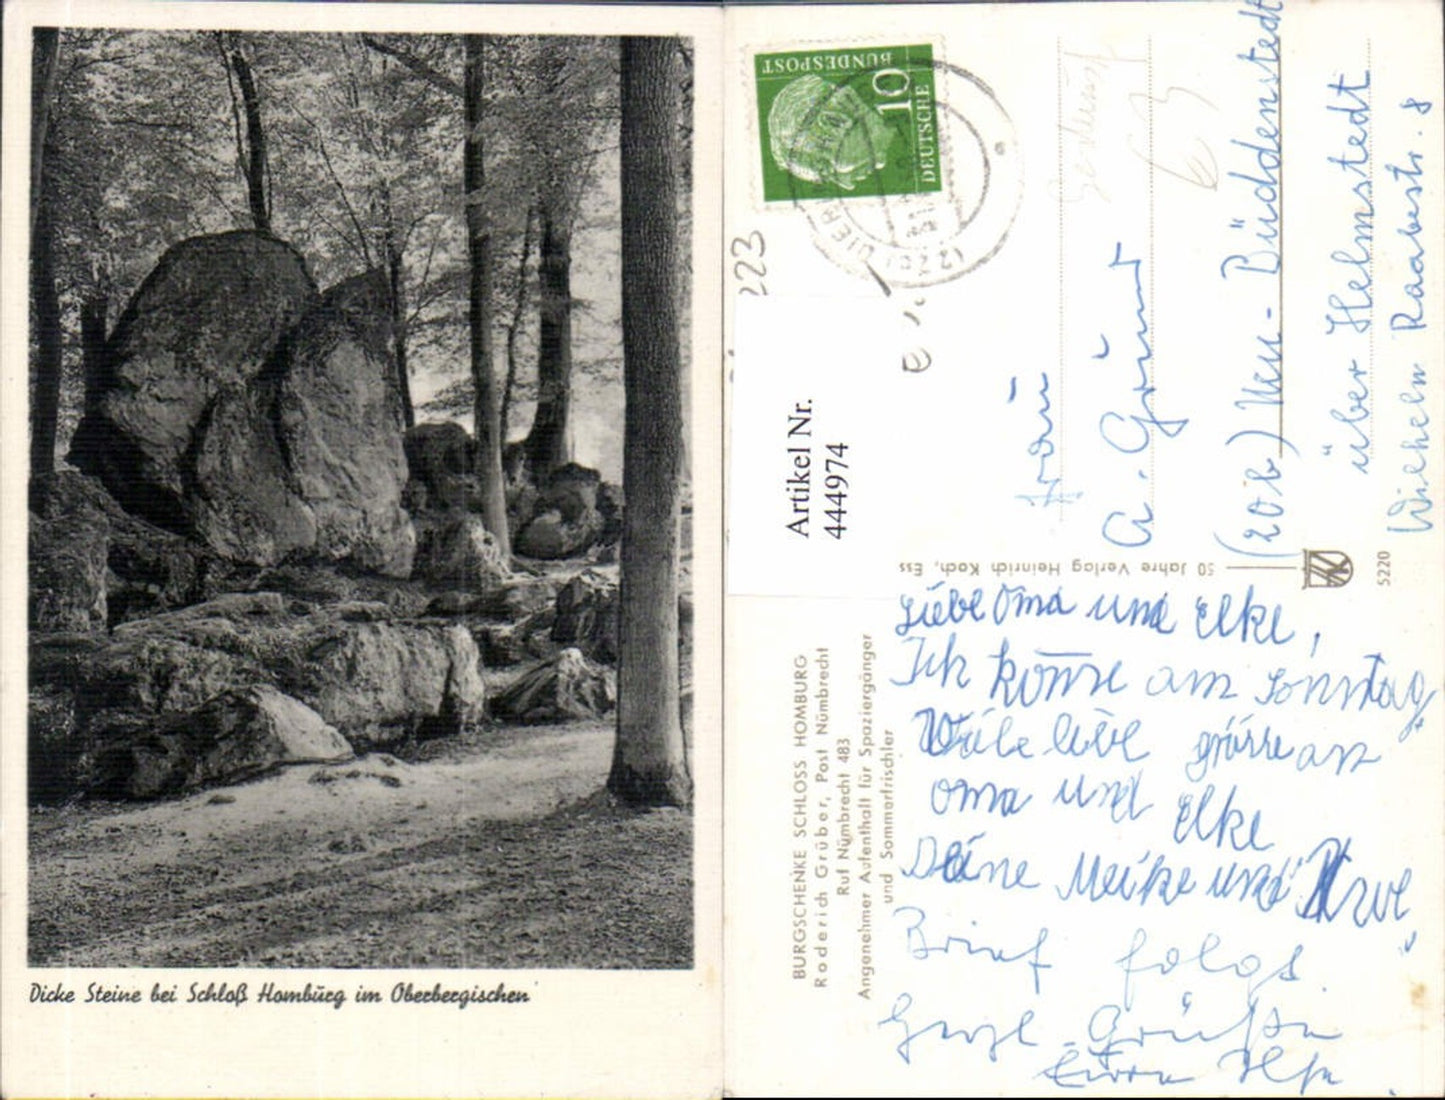 Dicke Steine bei Schloß Homburg im Oberbergischen
BUNDESPOST
10
DEUTSCHE
223
Artikel Nr.
444974
Frau
A. Grünert
(20b) Neu-Büddenstedt
über Helmstedt
Wilhelm Raabestr. 8
50 Jahre Verlag Heinrich Koch, Ess
5220
BURGSCHENKE SCHLOSS HOMBURG
Roderich Grüber, Post Nümbrecht
Ruf Nümbrecht 483
Angenehmer Aufenthalt für Spaziergänger
und Sommerfrischler
Liebe Oma und Elke,
Ich komme am Sonntag
Viele liebe grüsse an
Oma und Elke
Deine Meike und
Brief folgt.
Herzl. Grüße
Eure Ilse